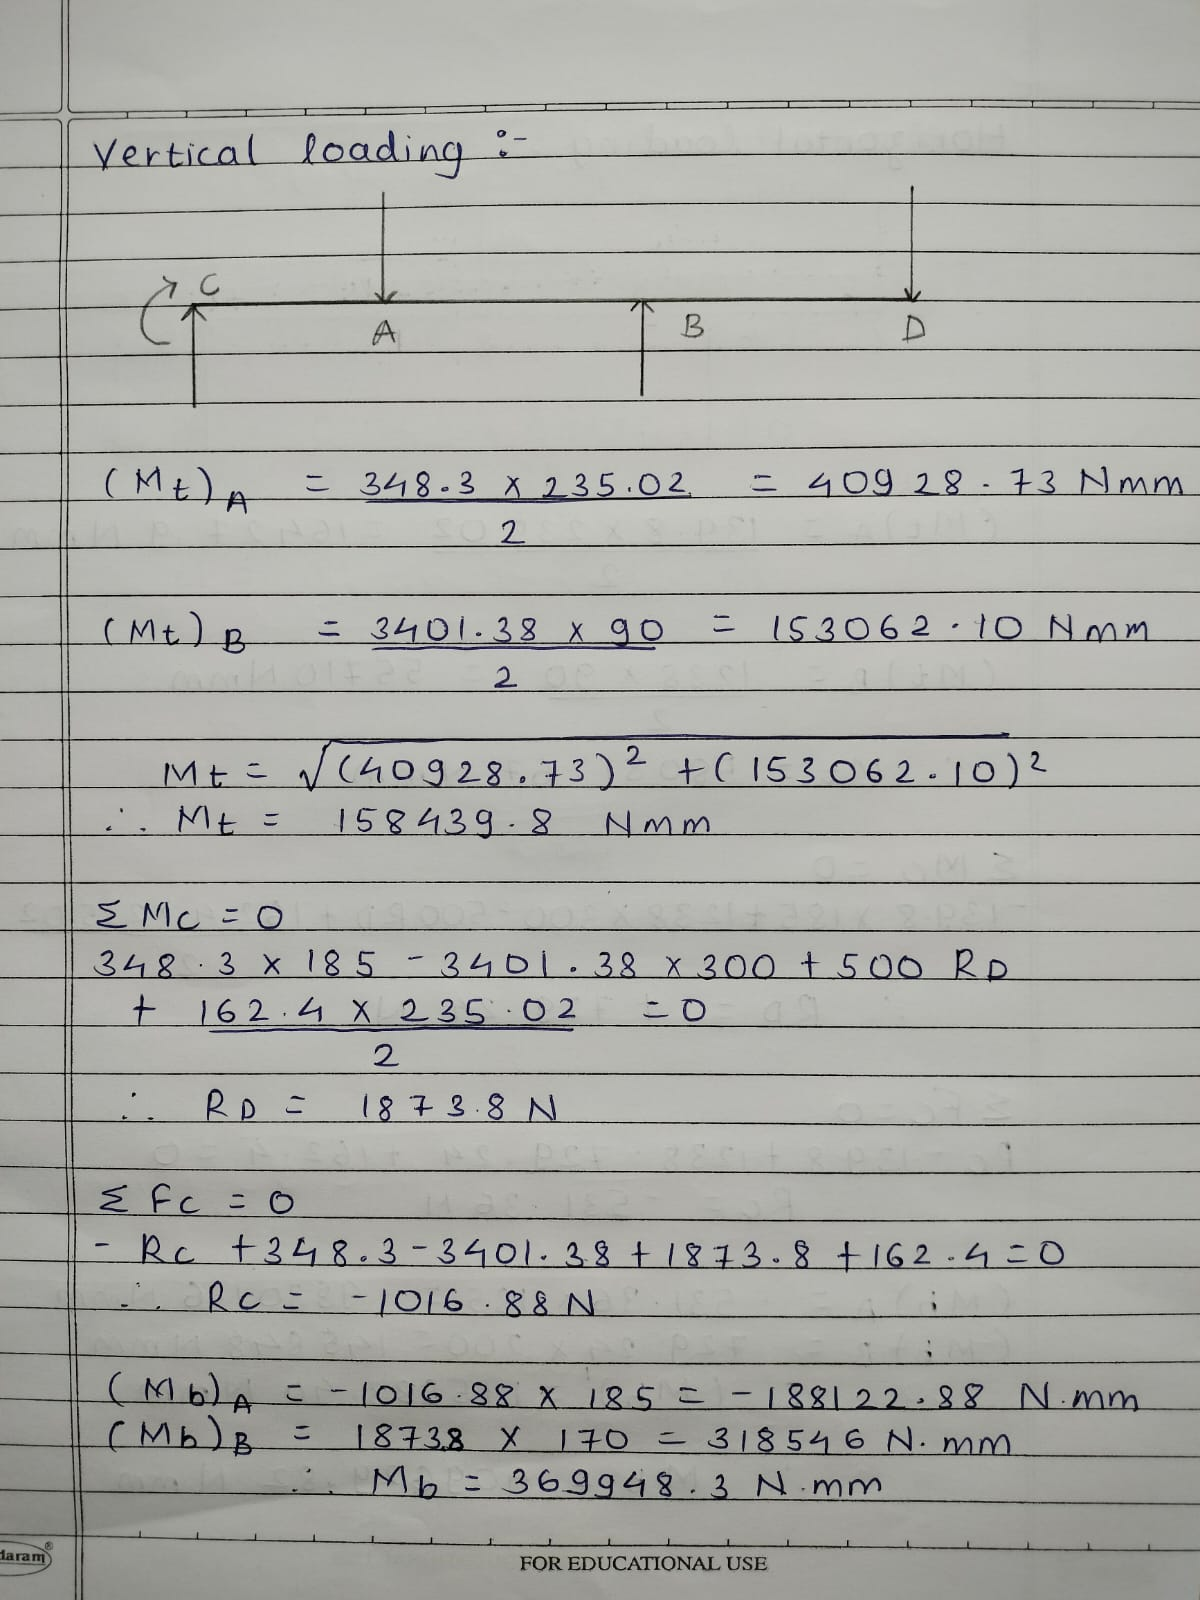 Vertical loading :-
C
A
B
D
(Mt)A = 348.3 x 235.02 / 2 = 40928.73 Nmm
(Mt)B = 3401.38 x 90 / 2 = 153062.10 Nmm
Mt = √(40928.73)² + (153062.10)²
∴ Mt = 158439.8 Nmm
Σ Mc = 0
348.3 x 185 - 3401.38 x 300 + 500 RD
+ 162.4 x 235.02 / 2 = 0
∴ RD = 1873.8 N
Σ Fc = 0
- Rc + 348.3 - 3401.38 + 1873.8 + 162.4 = 0
∴ Rc = -1016.88 N
(Mb)A = -1016.88 x 185 = -188122.88 N.mm
(Mb)B = 1873.8 x 170 = 318546 N.mm
∴ Mb = 369948.3 N.mm
daram®
FOR EDUCATIONAL USE